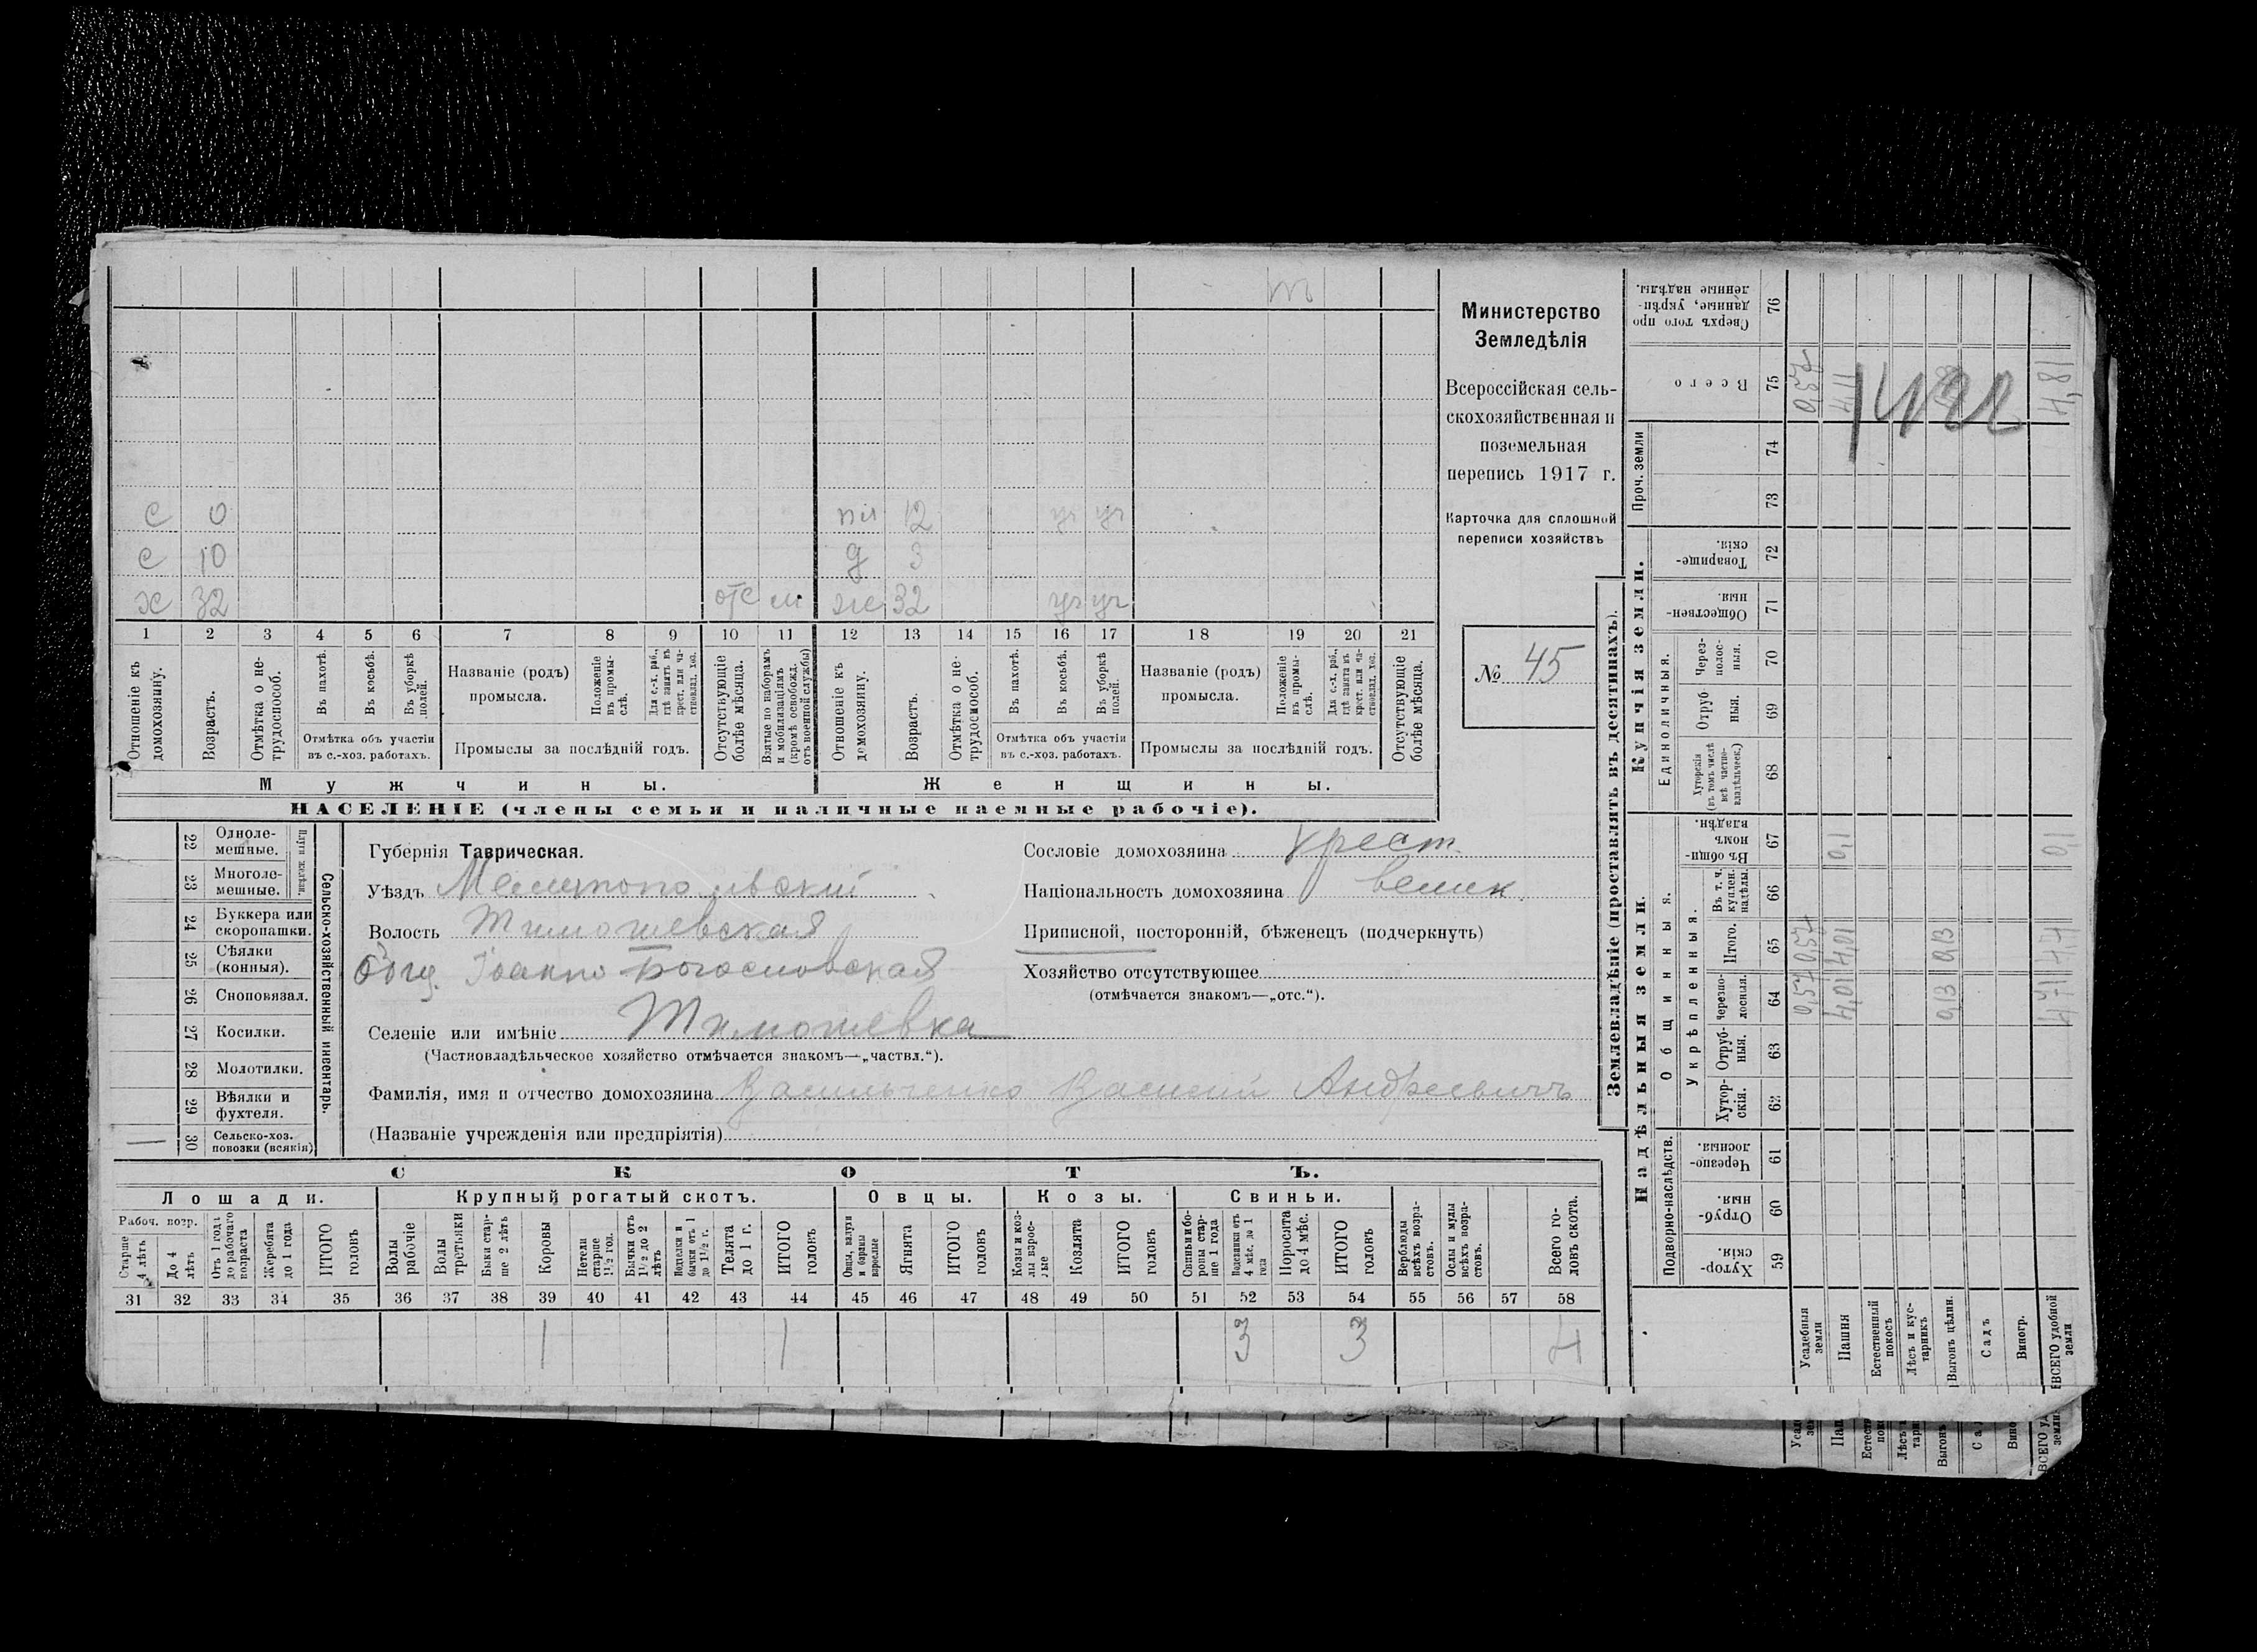 Министерство
Земледѣлія
Всероссійская сель-
скохозяйственная и
поземельная
перепись 1917 г.
Карточка для сплошной
переписи хозяйствъ
№ 45
с 0
пл 12 уч уч
с 10
д 3
х 32
отс м
же 32 уч уч
1 2 3 4 5 6 7 8 9 10 11 12 13 14 15 16 17 18 19 20 21
Отношеніе къ домохозяину.
Возрастъ.
Отмѣтка о не-трудоспособ.
Въ пахотѣ.
Въ косьбѣ.
Въ уборкѣ полей.
Отмѣтка объ участіи
въ с.-хоз. работахъ.
Названіе (родъ)
промысла.
Положеніе въ промы-слѣ.
Для с.-х. раб., гдѣ занятъ въ крест. или ча-стновлад. хоз.
Промыслы за послѣдній годъ.
Отсутствующіе болѣе мѣсяца.
Взятые по наборамъ и мобилизаціямъ (кромѣ освобожд. отъ военной службы)
Отношеніе къ домохозяину.
Возрастъ.
Отмѣтка о не-трудоспособ.
Въ пахотѣ.
Въ косьбѣ.
Въ уборкѣ полей.
Отмѣтка объ участіи
въ с.-хоз. работахъ.
Названіе (родъ)
промысла.
Положеніе въ промы-слѣ.
Для с.-х. раб., гдѣ занята въ крест. или ча-стновлад. хоз.
Промыслы за послѣдній годъ.
Отсутствующіе болѣе мѣсяца.
Мужчины.
Женщины.
НАСЕЛЕНІЕ (члены семьи и наличные наемные рабочіе).
Сельско-хозяйственный инвентарь.
Плуги желѣзн.
22 Одноле-мешные.
23 Многоле-мешные.
24 Буккера или скоропашки.
25 Сѣялки (конныя).
26 Сноповязал.
27 Косилки.
28 Молотилки.
29 Вѣялки и фухтеля.
30 Сельско-хоз. повозки (всякія)
Губернія Таврическая.
Уѣздъ Мелитопольвский
Волость Тимошевская
Общ. Іоанно Богословская
Селеніе или имѣніе Тимошевка
(Частновладѣльческое хозяйство отмѣчается знакомъ—„частвл.“).
Фамилія, имя и отчество домохозяина Васильченко Василій Андреевичъ
(Названіе учрежденія или предпріятія)
Сословіе домохозяина крест.
Національность домохозяина велик.
Приписной, посторонній, бѣженецъ (подчеркнуть)
Хозяйство отсутствующее
(отмѣчается знакомъ—„отс.“).
СКОТЪ.
Лошади.
Крупный рогатый скотъ.
Овцы.
Козы.
Свиньи.
Рабоч. возр.
Старше 4 лѣтъ
До 4 лѣтъ
Отъ 1 года до рабочаго возраста
Жеребята до 1 года
ИТОГО головъ
Волы рабочіе
Волы третьяки
Быки стар-ше 2 лѣтъ
Коровы
Нетели старше 1½ год.
Бычки отъ 1½ до 2 лѣтъ
Подтелки и бычки отъ 1 до 1½ г.
Телята до 1 г.
ИТОГО головъ
Овцы, валухи и бараны взрослые
Ягнята
ИТОГО головъ
Козы и коз-лы взрос-лые
Козлята
ИТОГО головъ
Свиньи и бо-ровы стар-ше 1 года
Подсвинки отъ 4 мѣс. до 1 года
Поросята до 4 мѣс.
ИТОГО головъ
Верблюды всѣхъ возра-стовъ.
Ослы и мулы всѣхъ возра-стовъ.
Всего го-ловъ скота.
31 32 33 34 35 36 37 38 39 40 41 42 43 44 45 46 47 48 49 50 51 52 53 54 55 56 57 58
1 1 3 3 4
Землевладѣніе (проставлять въ десятинахъ).
Надѣльныя земли.
Купчія земли.
Проч. земли
Подворно-наслѣдств.
Общинныя.
Укрѣпленныя.
Единоличныя.
Хутор-скія. 59
Отруб-ныя. 60
Черезпо-лосныя. 61
Хутор-скія. 62
Отруб-ныя. 63
Черезпо-лосныя. 64
Итого. 65
Въ т. ч. куплен. надѣлы. 66
Въ общин-номъ владѣн. 67
Хуторскія (въ томъ числѣ всѣ частно-владѣльческ.) 68
Отруб-ныя. 69
Через-полос-ныя. 70
Обществен-ныя. 71
Товарище-скія. 72
73
74
Всего 75
Сверхъ того про-данные, укрѣп-ленные надѣлы. 76
Усадебныя земли 0,57 0,57 0,57
Пашня 4,01 4,01 0,1 4,11
Естественный покосъ
Лѣсъ и кус-тарникъ
Выгонъ цѣлин. 0,13 0,13
Садъ
Виногр.
ВСЕГО удобной земли 4,71 4,71 0,1 4,81